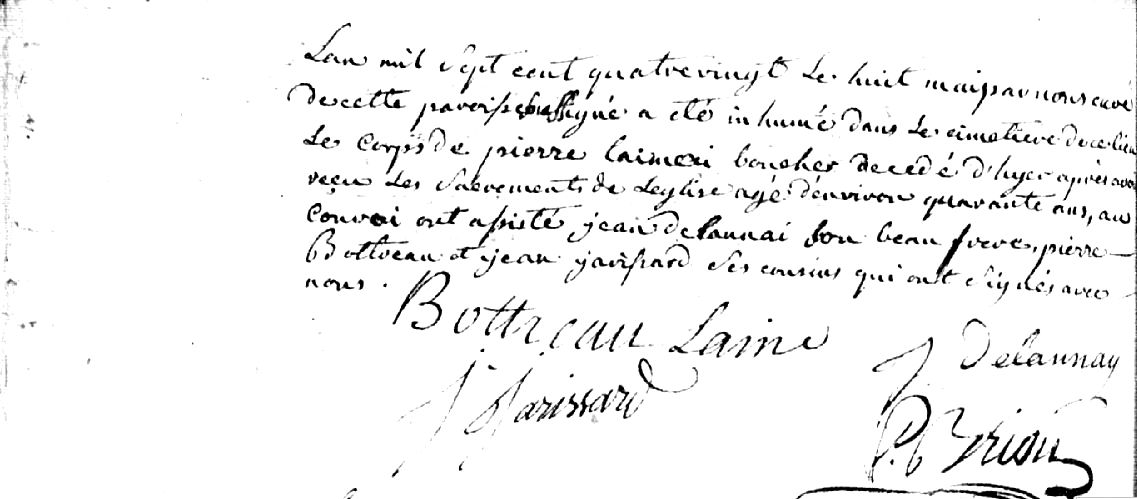 Lan mil sept cent quatrevingt le huit mai par nous curé
de cette paroisse soussigné a été inhumé dans le cimetiere de ce lieu
le corps de pierre laimeri boucher decedé d'hyer après avoir
reçu les sacrements de leglise agé d'environ quarante ans, au
convoi ont assisté jean delaunai son beau frere, pierre
Bottreau et jean jarissard ses cousins qui ont signés avec
nous.
Bottreau Lainé
J Delaunay
J. Jarissard
P. Brion